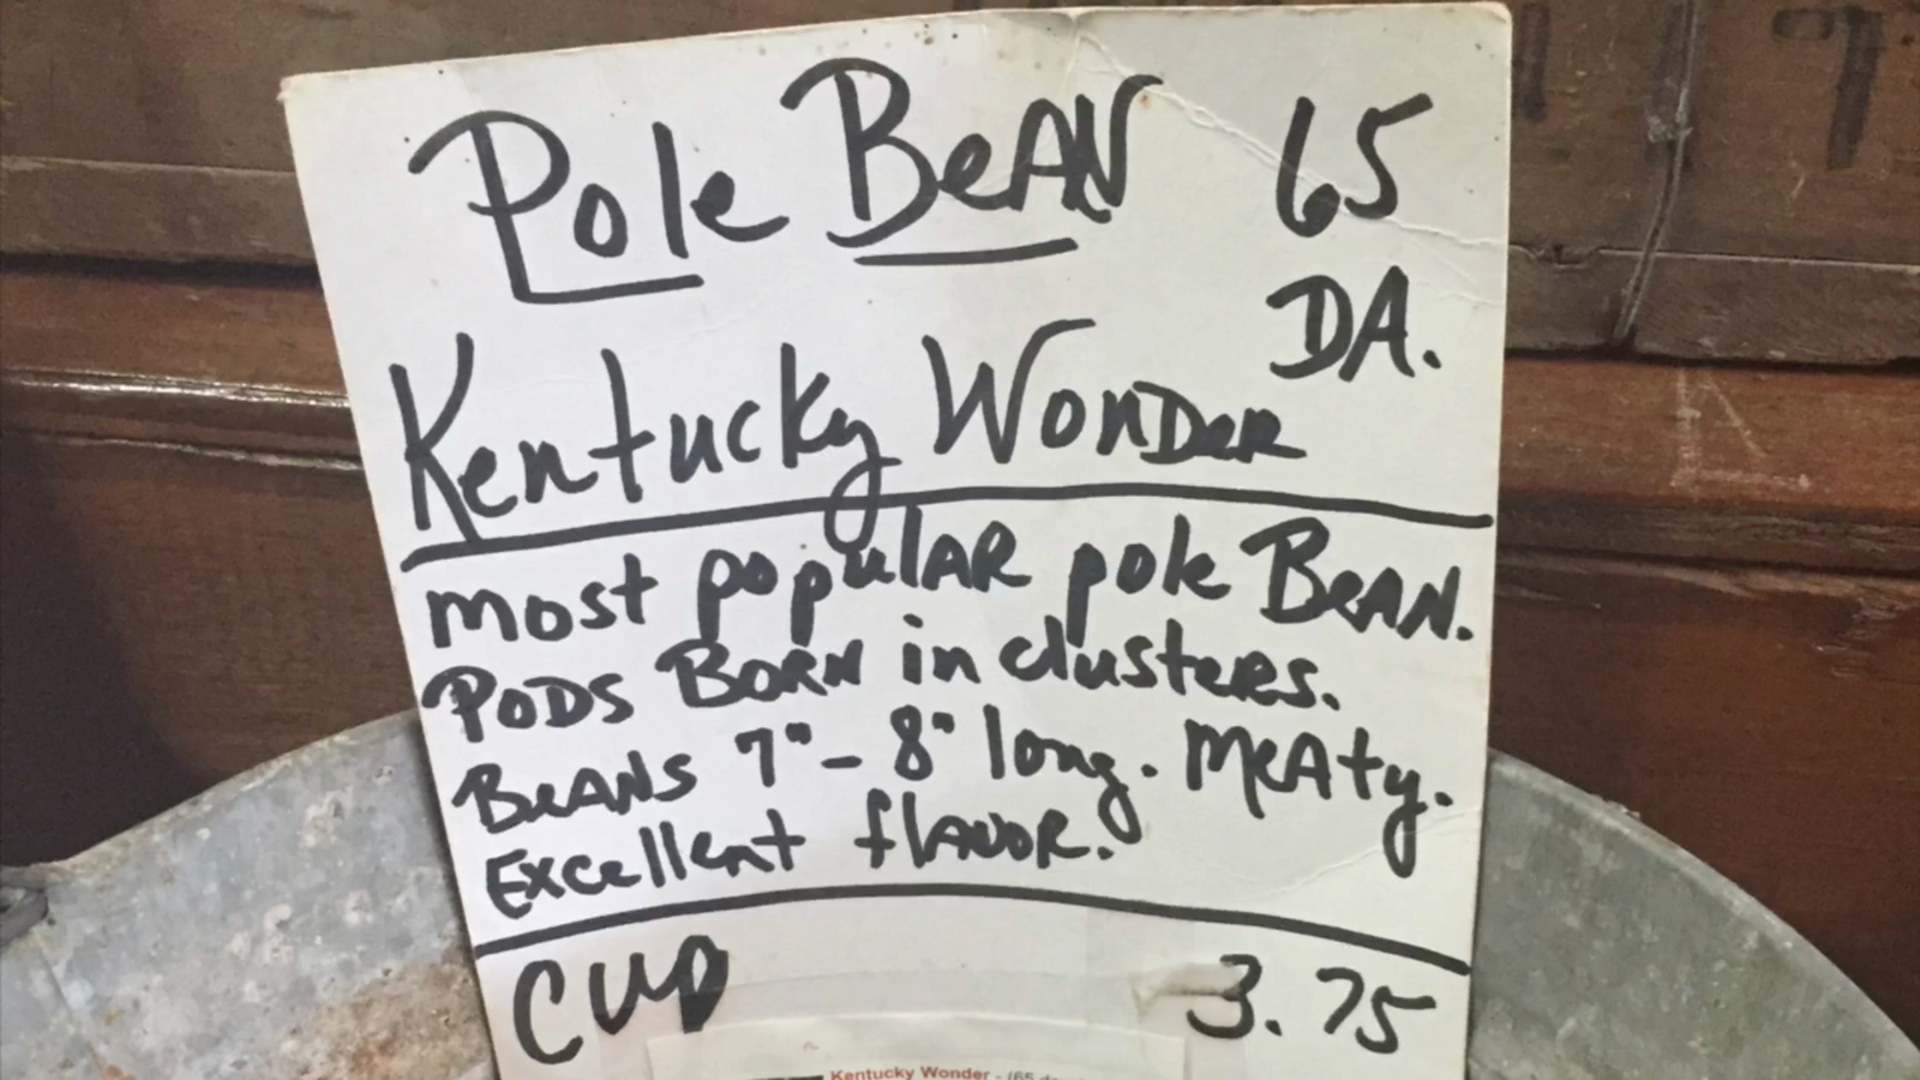 Pole Bean 65
DA.
Kentucky Wonder
most popular pole Bean.
Pods Born in clusters.
Beans 7" - 8" long. Meaty.
Excellent flavor.
CUP 3.75
Kentucky Wonder - (65